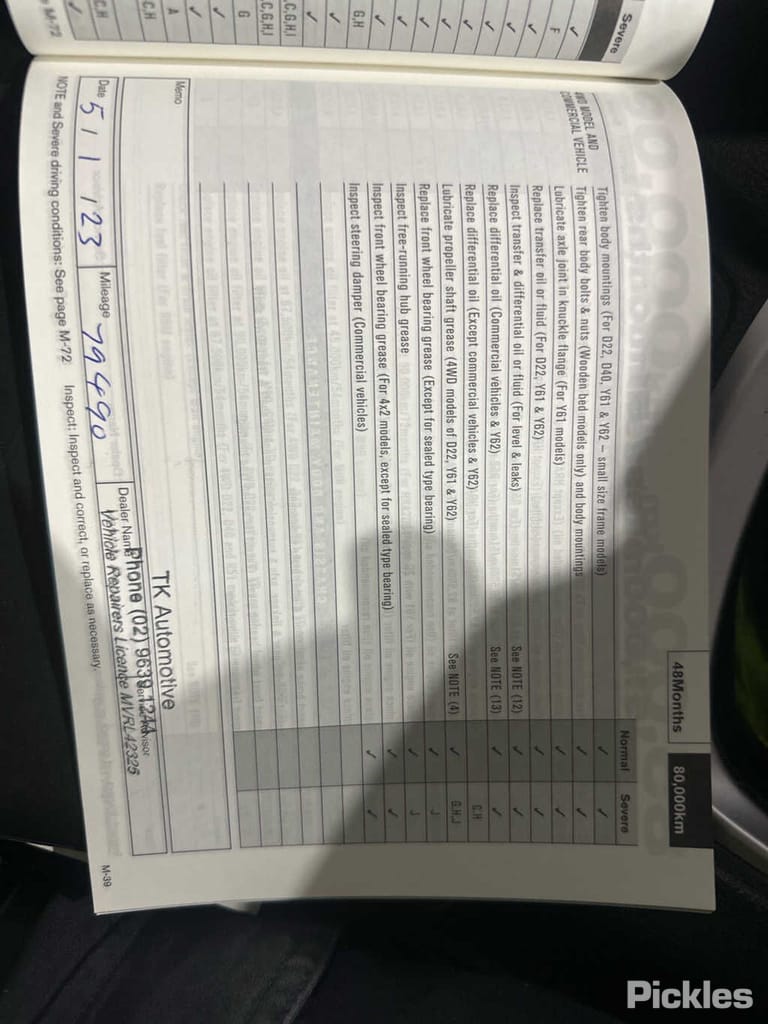 Severe
✓
F
✓
✓
✓
✓
✓
✓
✓
✓
G,H
✓
✓
C,G,H,I
C,G,H,I
G
✓
✓
A
C,H
C,H
✓
M-72
48Months 80,000km
Normal Severe
4WD MODEL AND
COMMERCIAL VEHICLE
Tighten body mountings (For D22, D40, Y61 & Y62 – small size frame models) ✓ ✓
Tighten rear body bolts & nuts (Wooden bed models only) and body mountings ✓ ✓
Lubricate axle joint in knuckle flange (For Y61 models) ✓ ✓
Replace transfer oil or fluid (For D22, Y61 & Y62) ✓ ✓
Inspect transfer & differential oil or fluid (For level & leaks) See NOTE (12) ✓ ✓
Replace differential oil (Commercial vehicles & Y62) See NOTE (13) ✓ ✓
Replace differential oil (Except commercial vehicles & Y62) G,H
Lubricate propeller shaft grease (4WD models of D22, Y61 & Y62) See NOTE (4) ✓ G,H,J
Replace front wheel bearing grease (Except for sealed type bearing) ✓ J
Inspect free-running hub grease ✓ J
Inspect front wheel bearing grease (For 4x2 models, except for sealed type bearing) ✓
Inspect steering damper (Commercial vehicles) ✓ ✓
Memo
TK Automotive
Phone (02) 9639 1244
Vehicle Repairers Licence MVRL42325
Date 5/1/23 Mileage 79490 Dealer Name
NOTE and Severe driving conditions: See page M-72 Inspect: Inspect and correct, or replace as necessary.
M-39
Pickles